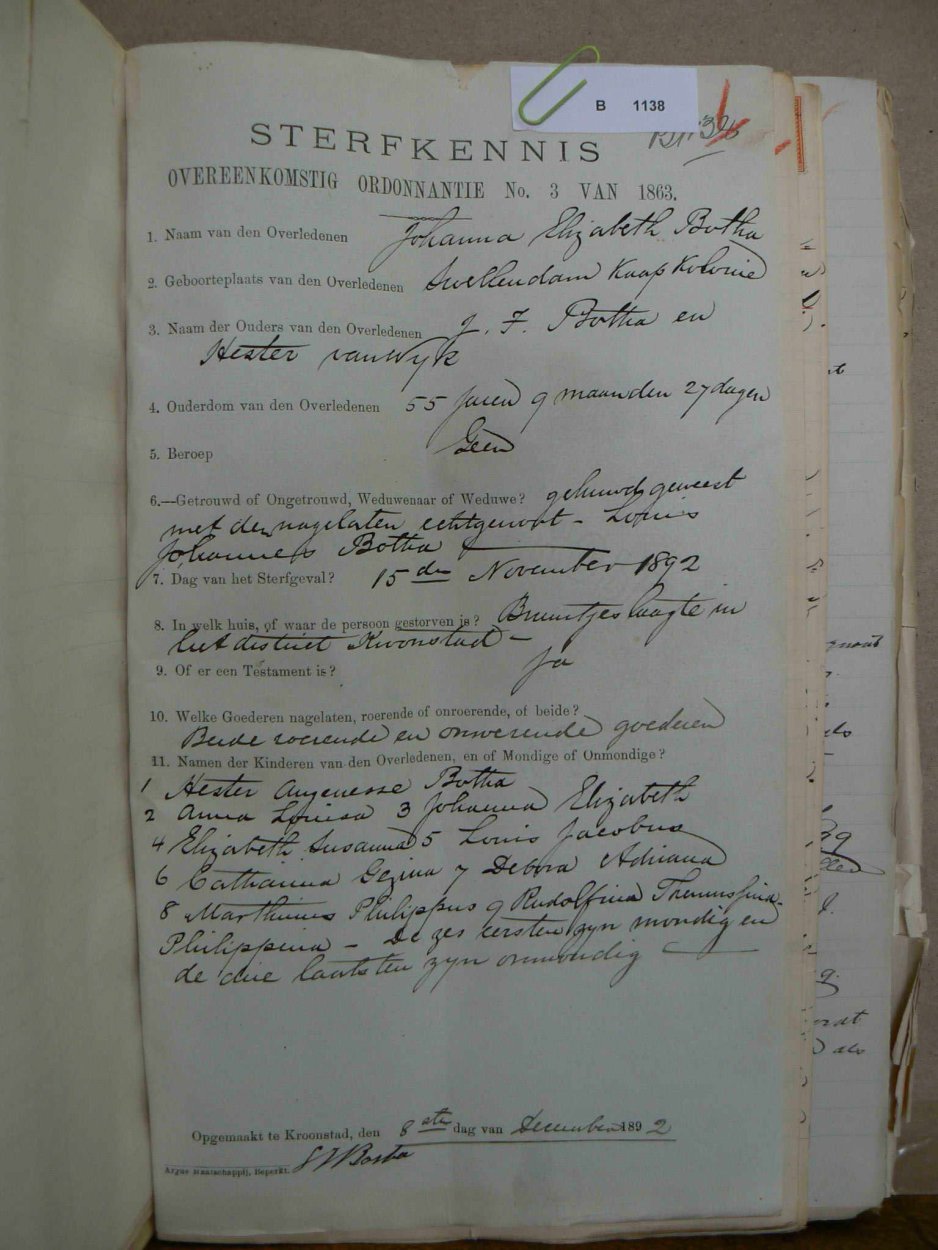 B 1138
STERFKENNIS
OVEREENKOMSTIG ORDONNANTIE No. 3 VAN 1863.
1. Naam van den Overledenen Johanna Elizabeth Botha
2. Geboorteplaats van den Overledenen Swellendam Kaap Kolonie
3. Naam der Ouders van den Overledenen J. F. Botha en
Hester van Wyk
4. Ouderdom van den Overledenen 55 Jaren 9 maanden 27 dagen
5. Beroep Geen
6.—Getrouwd of Ongetrouwd, Weduwenaar of Weduwe? gehuwd geweest
met den nagelaten echtgenoot - Louis
Johannes Botha
7. Dag van het Sterfgeval? 15de November 1892
8. In welk huis, of waar de persoon gestorven is? Bruintjeslaagte in
het district Kroonstad -
9. Of er een Testament is? Ja
10. Welke Goederen nagelaten, roerende of onroerende, of beide?
Beide roerende en onroerende goederen
11. Namen der Kinderen van den Overledenen, en of Mondige of Onmondige?
1 Hester Angenesse Botha
2 Anna Louisa 3 Johanna Elizabeth
4 Elizabeth Susanna 5 Louis Jacobus
6 Catharina Gezina 7 Debora Adriana
8 Marthinus Philippus 9 Rudolfina
Philippina - De zes eersten zyn mondig en
de drie laatsten zyn onmondig
Opgemaakt te Kroonstad, den 8ste dag van December 1892
Botha
Argus Maatschappij, Beperkt.